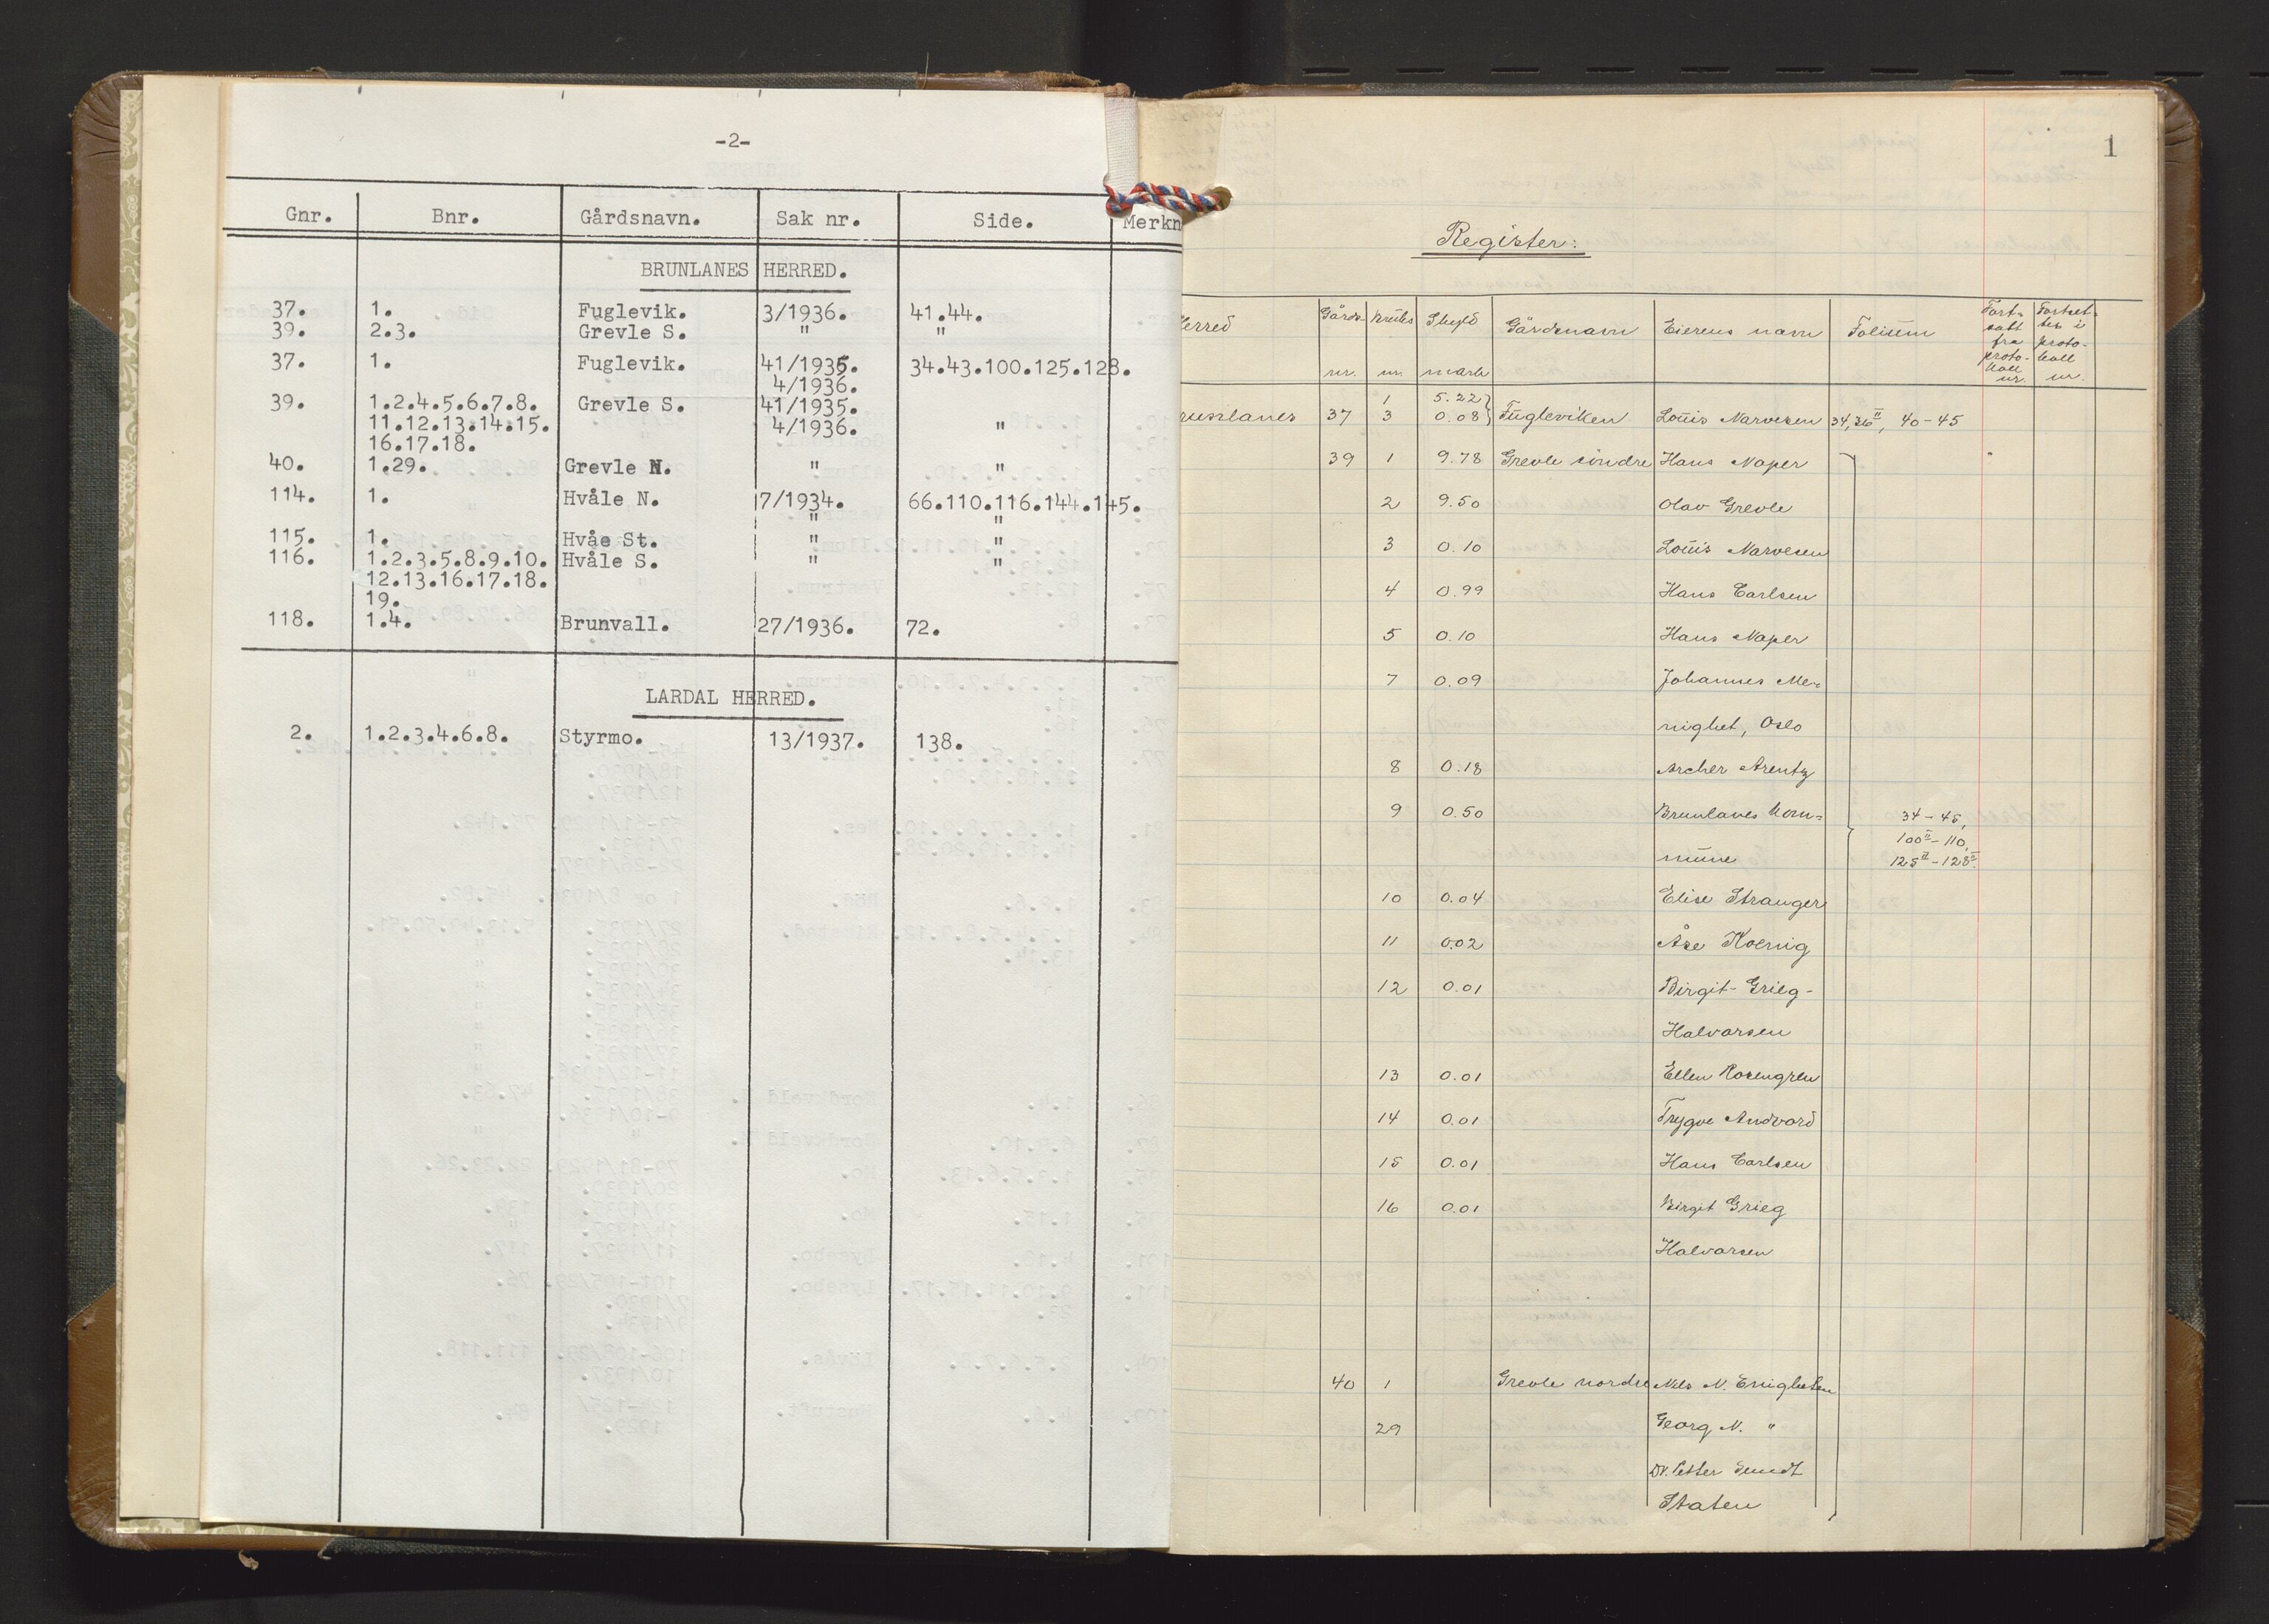 -2-
Gnr. Bnr. Gårdsnavn. Sak nr. Side. Merkn
BRUNLANES HERRED.
37. 1. Fuglevik. 3/1936. 41.44.
39. 2.3. Grevle S. " "
37. 1. Fuglevik. 41/1935. 34.43.100.125.128.
4/1936.
39. 1.2.4.5.6.7.8. Grevle S. 41/1935.
11.12.13.14.15. 4/1936. "
16.17.18.
40. 1.29. Grevle N. " "
114. 1. Hvåle N. 7/1934. 66.110.116.144.145.
" "
115. 1. Hvåe St. " "
116. 1.2.3.5.8.9.10. Hvåle S. " "
12.13.16.17.18.
19.
118. 1.4. Brunvall. 27/1936. 72.
LARDAL HERRED.
2. 1.2.3.4.6.8. Styrmo. 13/1937. 138.
1
Register:
Herred Gårds- Bruks Skyld Gårdsnavn Eierens navn Folium Fort- Fortset-
satt tes i
fra proto-
proto- koll
nr. nr. mark koll nr.
nr.
1 5.22
Brunlanes 37 3 0.08 Fugleviken Louis Narvesen 34, 36II, 40-45
39 1 9.78 Grevle søndre Hans Naper
2 9.50 Olav Grevle
3 0.10 Louis Narvesen
4 0.99 Hans Carlsen
5 0.10 Hans Naper
7 0.09 Johannes Me-
nighet, Oslo
8 0.18 Archer Arentz
9 0.50 Brunlanes kom= 34-45,
100II-110,
mune 125II-128II
10 0.04 Elise Stranger
11 0.02 Åse Koenig
12 0.01 Birgit Grieg-
Halvorsen
13 0.01 Ellen Rosengren
14 0.01 Trygve Andvord
15 0.01 Hans Carlsen
16 0.01 Birgit Grieg
Halvorsen
40 1 Grevle nordre Nils N.
29 Georg N. "
Dr. Petter
Staten